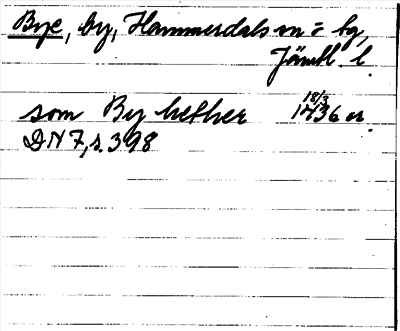 Bye, by, Hammerdals sn = hg,
Jämtl. l.
som By hether 18/3 1436 or.
DN 7, s. 398